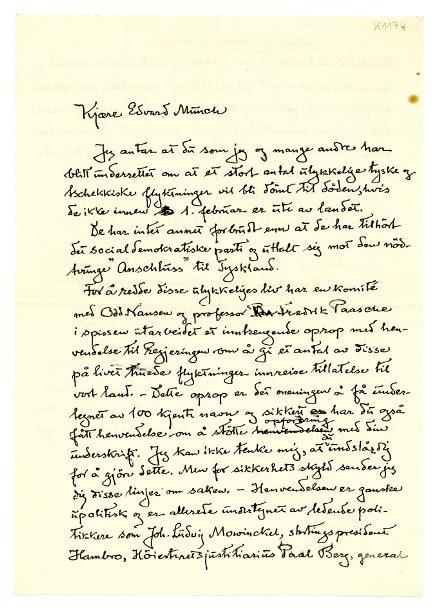 K1174
Kjære Edvard Munch
Jeg antar at du som jeg og mange andre har
blitt underrettet om at et stort antal ulykkelige tyske og
tschekkiske flyktninger vil bli dömt til döden, hvis
de ikke innen 1. februar er ute av landet.
De har intet annet forbrudt enn at de har tilhört
det socialdemokratiske parti og uttalt sig mot den nöd-
tvungne "Anschluss" til Tyskland.
For å redde disse ulykkeliges liv har en komité
med Odd Nansen og professor Fredrik Paasche
i spissen utarbeidet et inntrengende oprop med hen-
vendelse til Regjeringen om å gi et antal av disse
på livet truede flyktninger innreise tillatelse til
vort land. – Dette oprop er det meningen å få under-
tegnet av 100 kjente navn og sikkert har du også
fått henvendelse om å stötte opfordring med din
underskrift. Jeg kan ikke tenke mig, at du undslår dig
for å gjöre dette. Men for sikkerhets skyld sender jeg
dig disse linjer om saken. – Henvendelsen er ganske
upolitisk og er allerede undertegnet av ledende poli-
tikkere som Joh. Ludvig Mowinckel, stortingspresident
Hambro, Höiesterettsjustitiarius Paal Berg, general